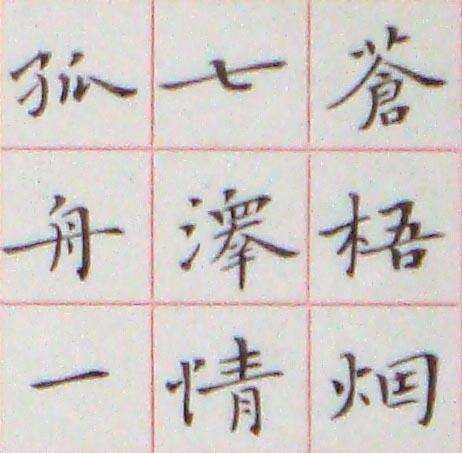 蒼梧烟
七澤情
孤舟一